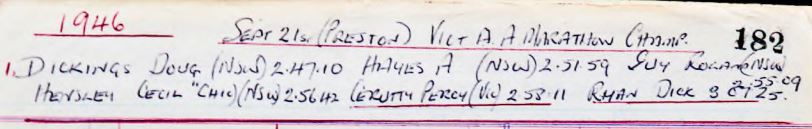 1946 Sept 21st (Preston) Vict A.A Marathon Champ. 182
1, Dickings Doug (NSW) 2.47.10 Hayes A (NSW) 2.51.59 Guy Roland (NSW) 2.55.09
Hensley Cecil "Chic" (NSW) 2.56.42 Cerutty Percy (Vic) 2.58.11 Rhan Dick 3 01 25.